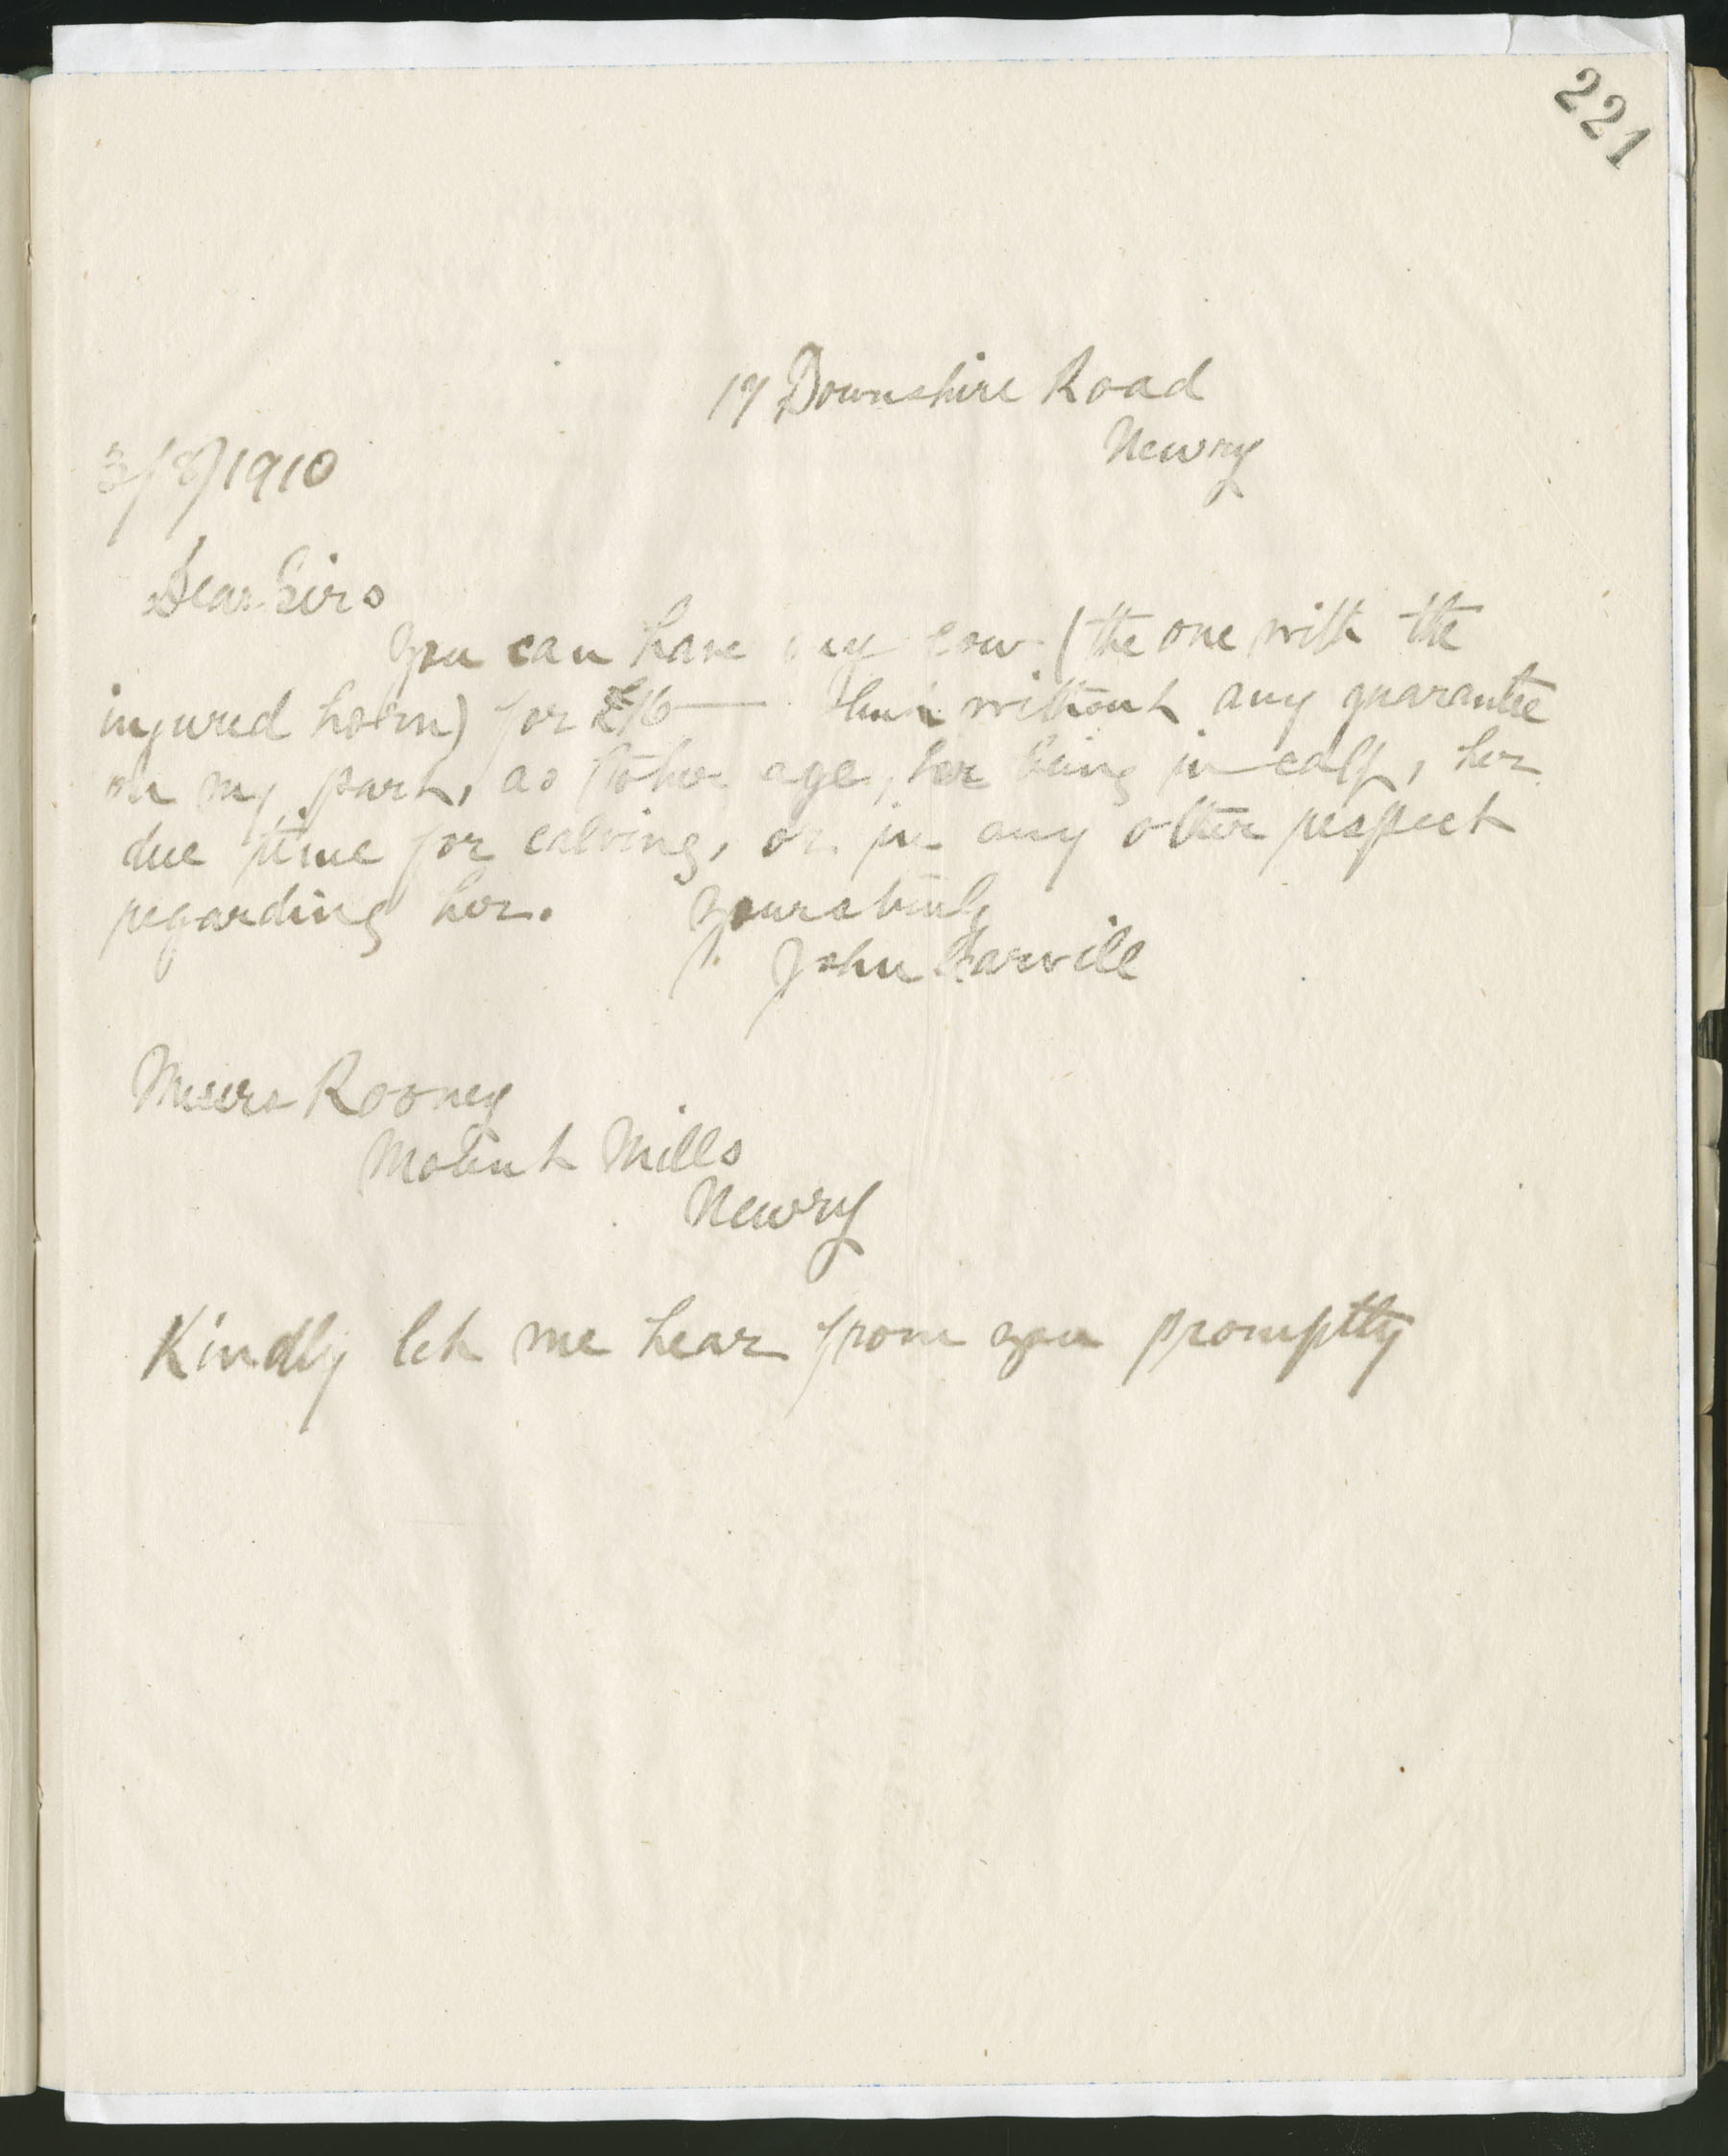 221
17 Downshire Road
Newry
3/8/1910
Dear Sirs
You can have my cow (the one with the
injured horn) for £16 — but without any guarantee
on my part, as to her age, her being in calf, her
due time for calving, or in any other respect
regarding her. Yours truly
John
Messrs Rooney
Mount Mills
Newry
Kindly let me hear from you promptly